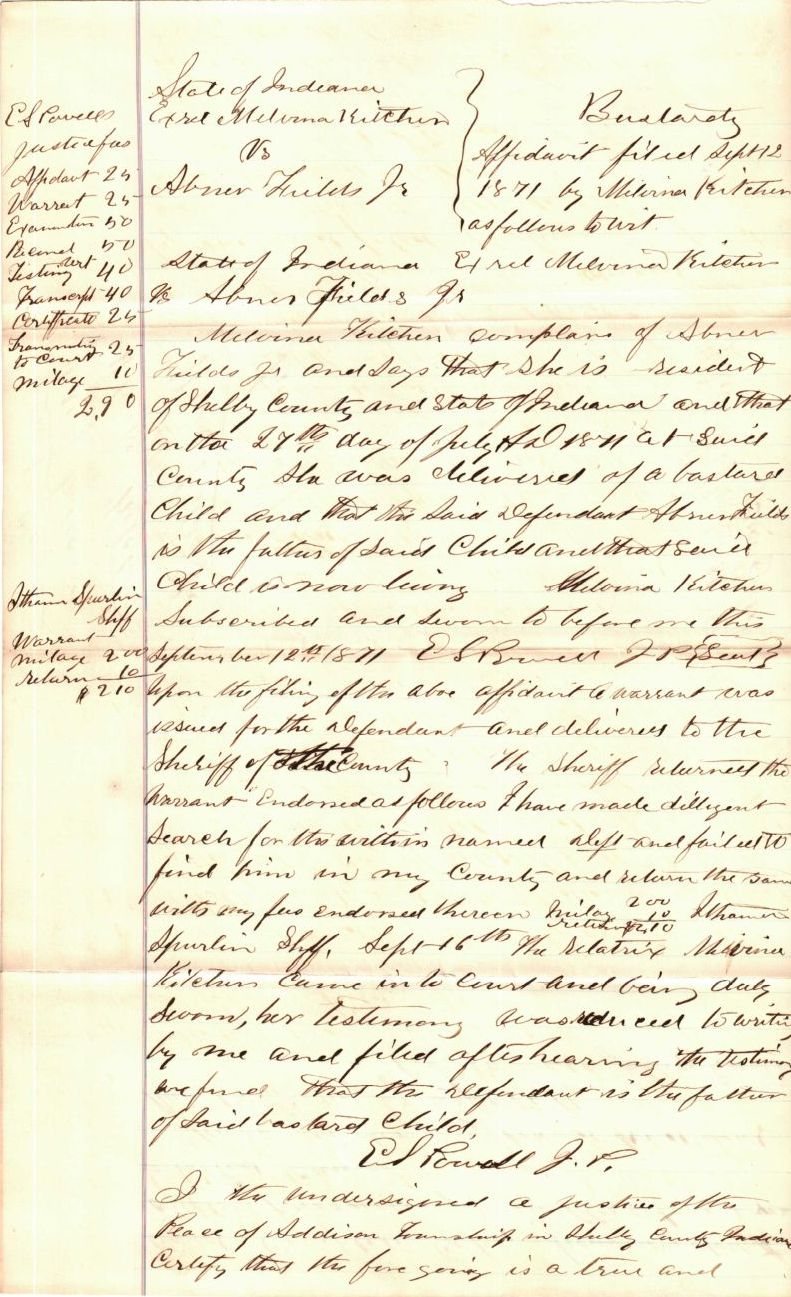 E S Powells
Justice fees
Affidavt 25
Warrent 25
Examination 50
Record 50
Testimony 40
Transcript 40
Certificate 25
Transmitting
to Court 25
Milage 10
2,90
State of Indiana
Exrel Melvina Kitchen
Vs
Abner Fields Jr
Bastardy
Affidavit filed Sept 12
1871 by Milvina Kitchen
as follows to wit
State of Indiana Exrel Melvina Kitchen
Vs Abner Fields Jr
Melvina Kitchen complains of Abner
Fields Jr and says that she is resident
of Shelby County and State of Indiana and that
on the 27th day of July AD 1871 at Said
County she was delivered of a bastard
Child and that the Said Defendant Abner Fields
is the father of Said Child and that Said
Child is now living Melvina Kitchen
Subscribed and sworn to before me this
September 12th 1871 E S Powell J P {Seal}
Ithamer Spurlin
Shff
Warrant
milage 2 00
return 10
$ 2 10
upon the filing of the abov affidavit a warrant was
issued for the Defendant and delivered to the
Sheriff of the County The Sheriff returned the
Warrant Endorsed as follows I have made dilligent
Search for the within named deft and failed to
find him in my County and return the same
with my fees endorsed thereon Milage 2 00
return 10
$2 10
Ithamer
Spurlin Shff, Sept 16th The relatrix Melvina
Kitchen came in to Court and being duly
Sworn, her testimony was reduced to writing
by me and filed after hearing the testimony
we find that the Defendant is the father
of Said bastard Child,
E S Powell J. P.
I the undersigned a justice of the
Peace of Addison Township in Shelby County Indiana
Certify that the foregoing is a true and